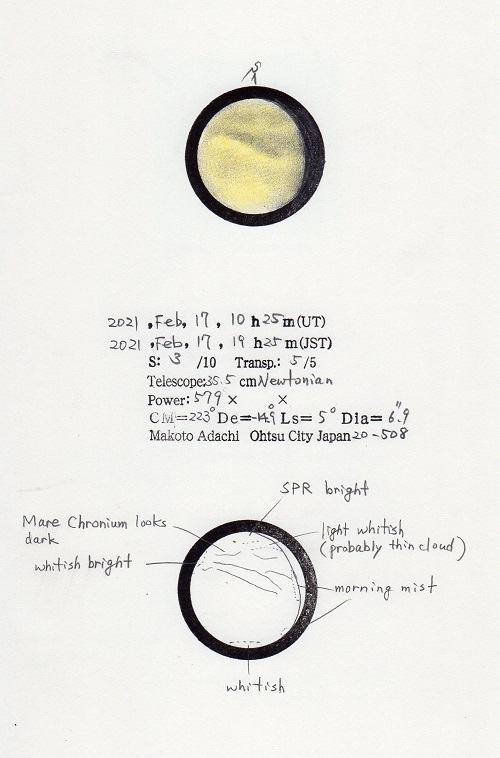 S
2021 , Feb, 17 , 10 h 25 m (UT)
2021 , Feb, 17 , 19 h 25 m (JST)
S: 3 /10 Transp.: 5 /5
Telescope: 35.5 cm Newtonian
Power: 579 × ×
CM=223° De=-14.9° Ls= 5° Dia= 6.″9
Makoto Adachi Ohtsu City Japan 20-508
SPR bright
Mare Chronium looks
dark
light whitish
(probably thin cloud)
whitish bright
morning mist
whitish